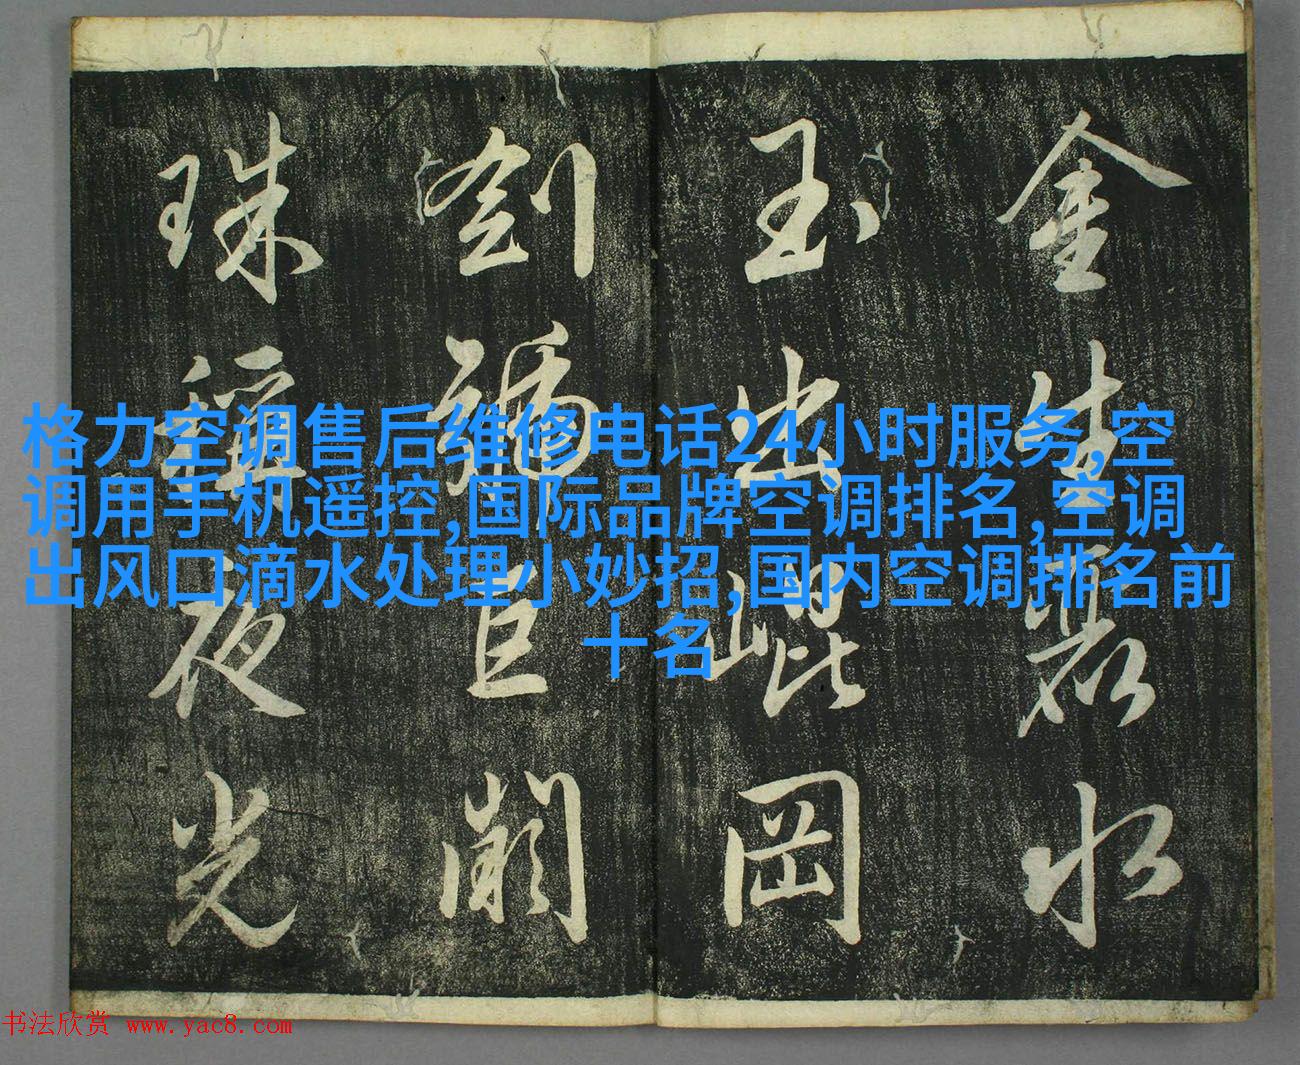 金生麗水
玉出崐岡
劍號巨闕
珠稱夜光
格力空调售后维修电话24小时服务,空
调用手机遥控,国际品牌空调排名,空调
出风口滴水处理小妙招,国内空调排名前
十名
书法欣赏 www.yac8.com